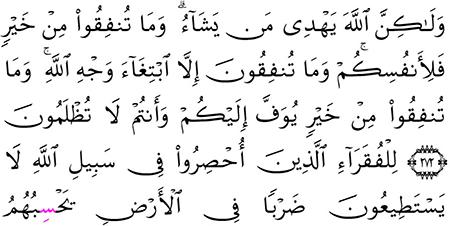 وَلَـٰكِنَّ ٱللَّهَ يَهْدِى مَن يَشَآءُ ۗ وَمَا تُنفِقُوا۟ مِنْ خَيْرٍ
فَلِأَنفُسِكُمْ ۚ وَمَا تُنفِقُونَ إِلَّا ٱبْتِغَآءَ وَجْهِ ٱللَّهِ ۚ وَمَا
تُنفِقُوا۟ مِنْ خَيْرٍ يُوَفَّ إِلَيْكُمْ وَأَنتُمْ لَا تُظْلَمُونَ
﴿٢٧٢﴾ لِلْفُقَرَآءِ ٱلَّذِينَ أُحْصِرُوا۟ فِى سَبِيلِ ٱللَّهِ لَا
يَسْتَطِيعُونَ ضَرْبًا فِى ٱلْأَرْضِ يَحْسِبُهُمُ